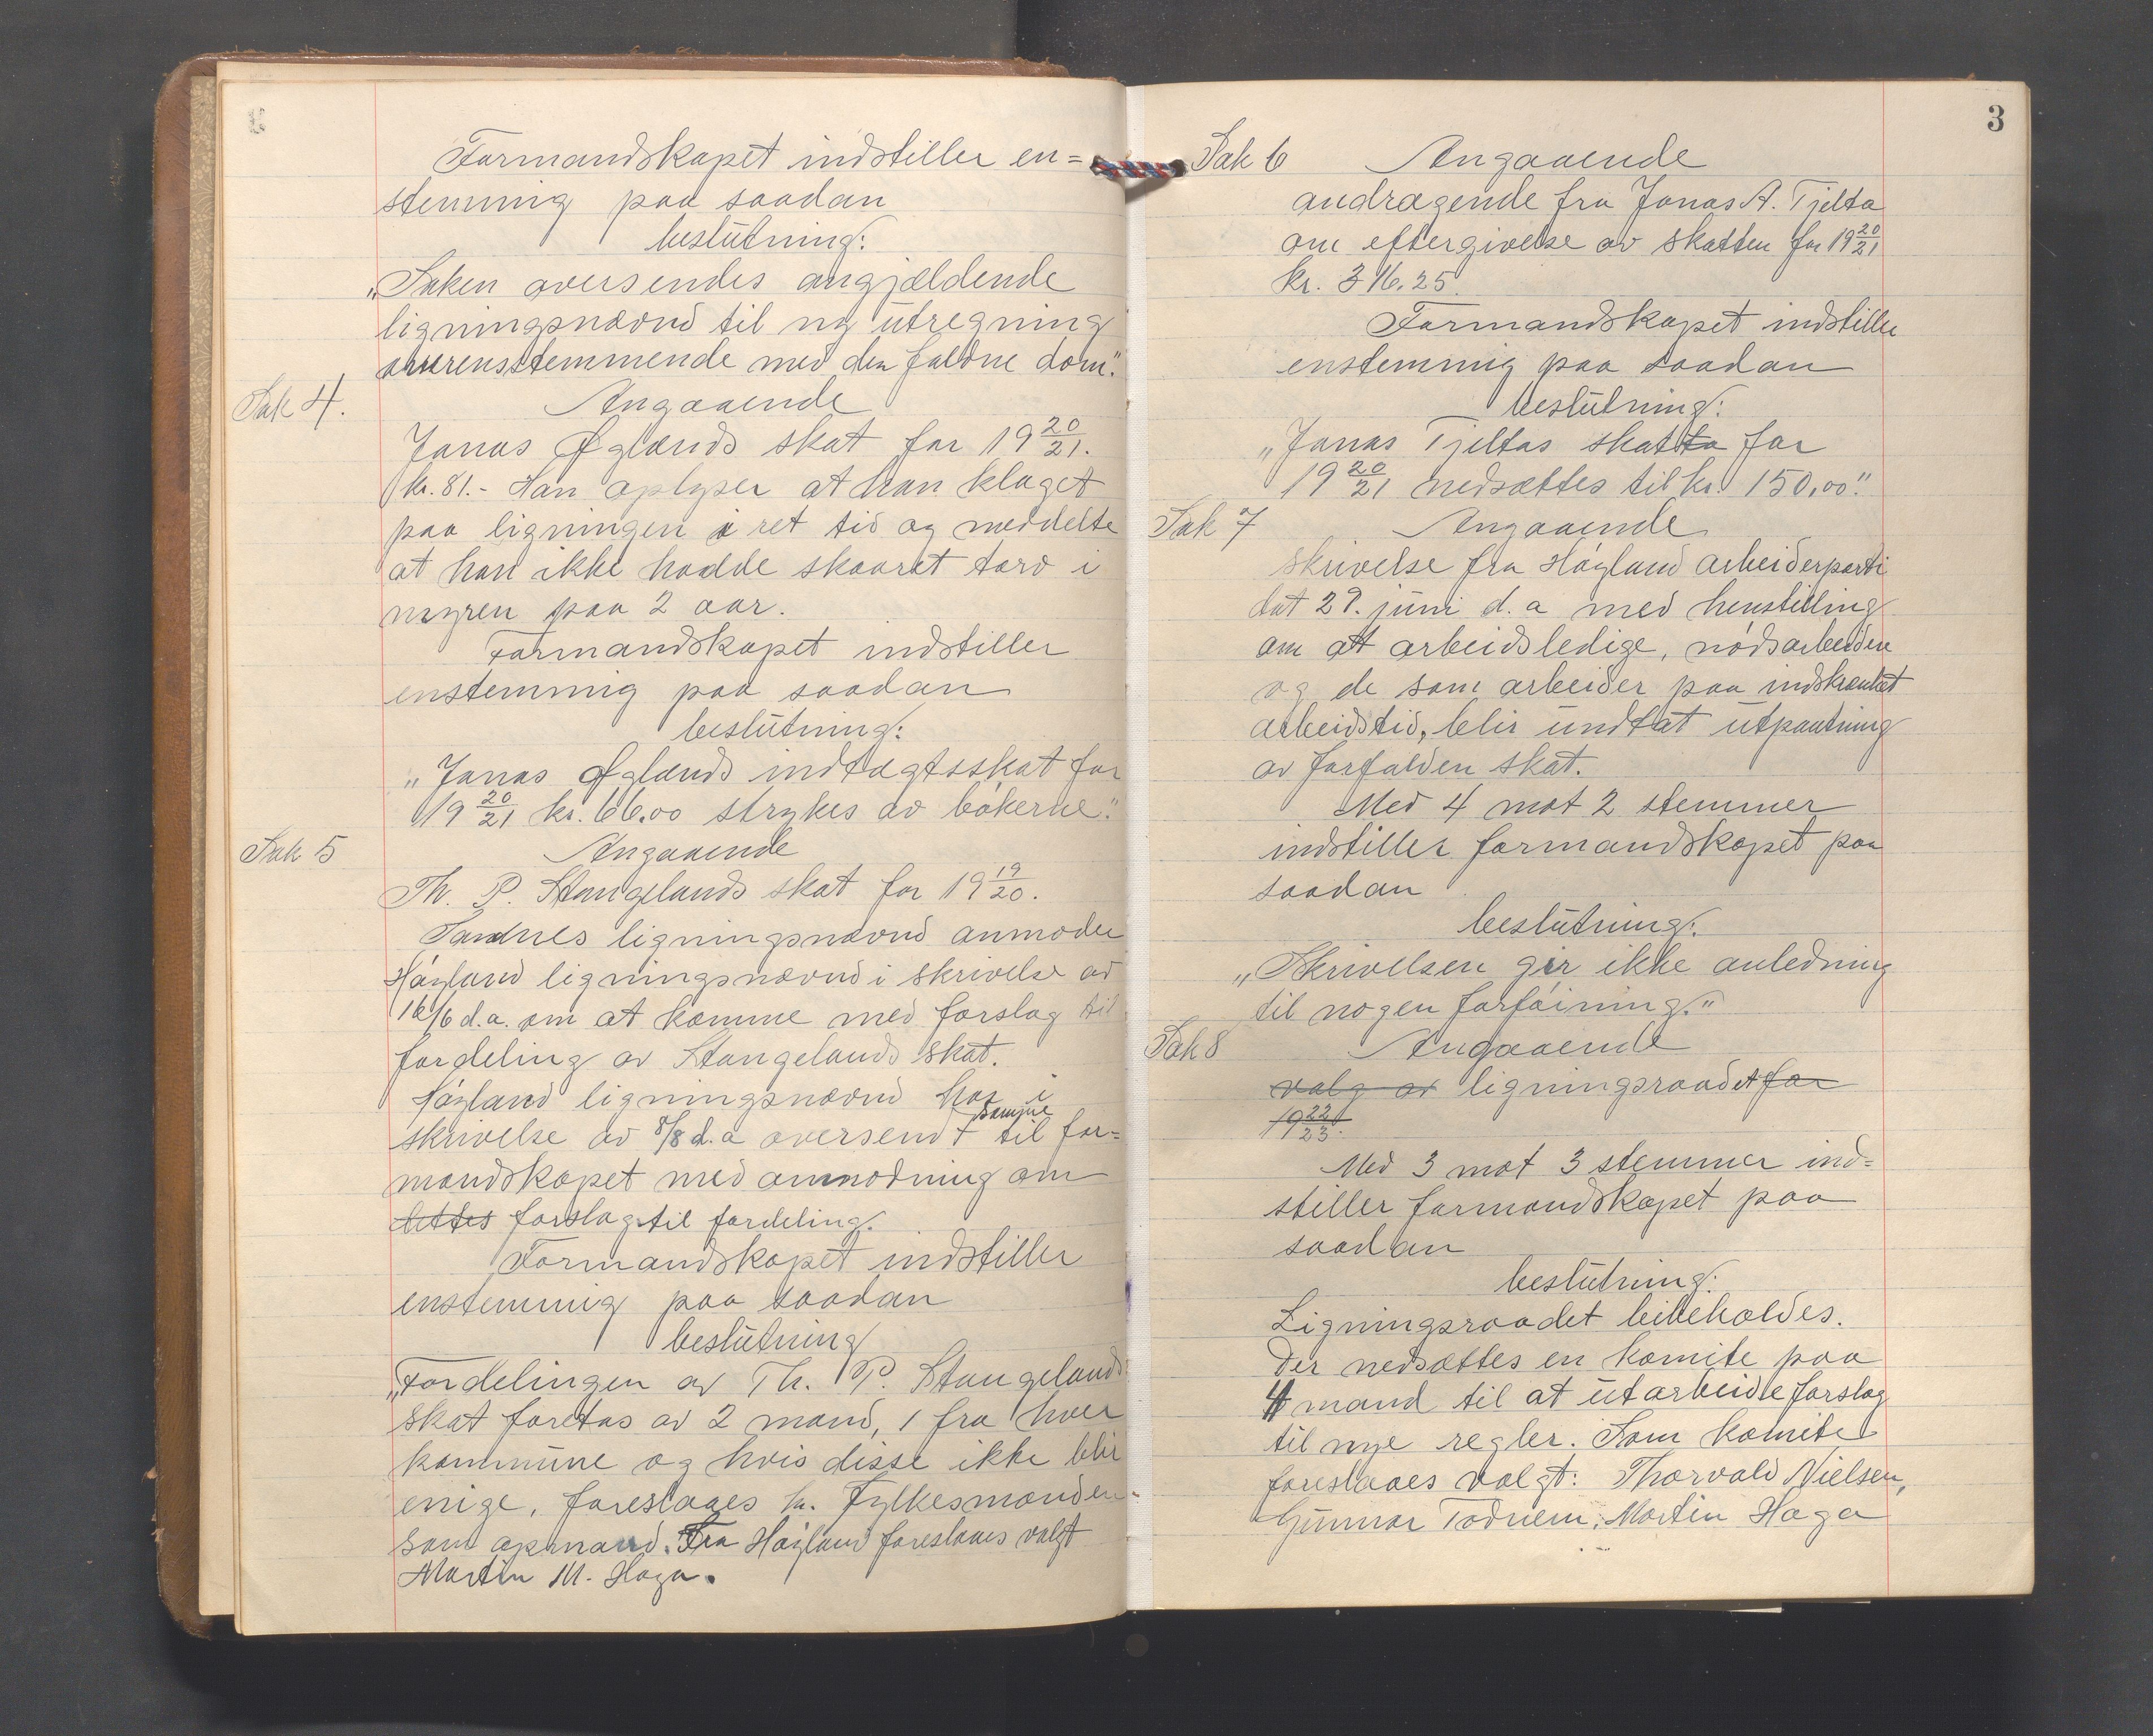 Formandskapet indstiller en=
stemmig paa saadan
beslutning:
„Saken oversendes angjældende
ligningsnævnd til ny utregning
overensstemmende med den faldne dom."
Sak 4. Angaaende
Jonas Øglænds skat for 19 20/21.
kr. 81.- Han oplyser at han klaget
paa ligningen i ret tid og meddelte
at han ikke hadde skaaret torv i
myren paa 2 aar.
Formandskapet indstiller
enstemmig paa saadan
beslutning:
„Jonas Øglænds indtægtsskat for
19 20/21 kr. 66.00 strykes av bøkerne."
Sak 5 Angaaende
Th. P. Stangelands skat for 19 19/20.
Sandnes ligningsnævnd anmoder
Høyland ligningsnævnd i skrivelse av
16/6 d.a. om at komme med forslag til
fordeling av Stangelands skat.
Høyland ligningsnævnd har i
skrivelse av 8/8 d.a oversendt samme til for=
mandskapet med anmodning om
forslag til fordeling.
Formandskapet indstiller
enstemmig paa saadan
beslutning
„Fordelingen av Th. P. Stangelands
skat foretas av 2 mand, 1 fra hver
kommune og hvis disse ikke blir
enige, foreslaaes hr. Fylkesmanden
som opmand. Fra Høyland foreslaaes valgt
Martin M. Haga.
3
Sak 6 Angaaende
andragende fra Jonas A. Tjelta
om eftergivelse av skatten for 19 20/21
kr. 316.25.
Formandskapet indstiller
enstemmig paa saadan
beslutning:
„Jonas Tjeltas skatta for
19 20/21 nedsættes til kr. 150,00."
Sak 7 Angaaende
skrivelse fra Høyland arbeiderparti
dat 29. juni d.a med henstilling
om at arbeidsledige, nødsarbeidere
og de som arbeider paa indskrænket
arbeidstid, blir undtat utpantning
av forfalden skat.
Med 4 mot 2 stemmer
indstiller formandskapet paa
saadan
beslutning:
„Skrivelsen gir ikke anledning
til nogen forføining."
Sak 8 Angaaende
valg av ligningsraadet for
19 22/23.
Med 3 mot 3 stemmer ind=
stiller formandskapet paa
saadan
beslutning:
Ligningsraadet beibeholdes.
Der nedsættes en komite paa
4 mand til at utarbeide forslag
til nye regler. Som komite
foreslaaes valgt: Thorvald Nielsen,
Gunnar Todnem, Martin Haga